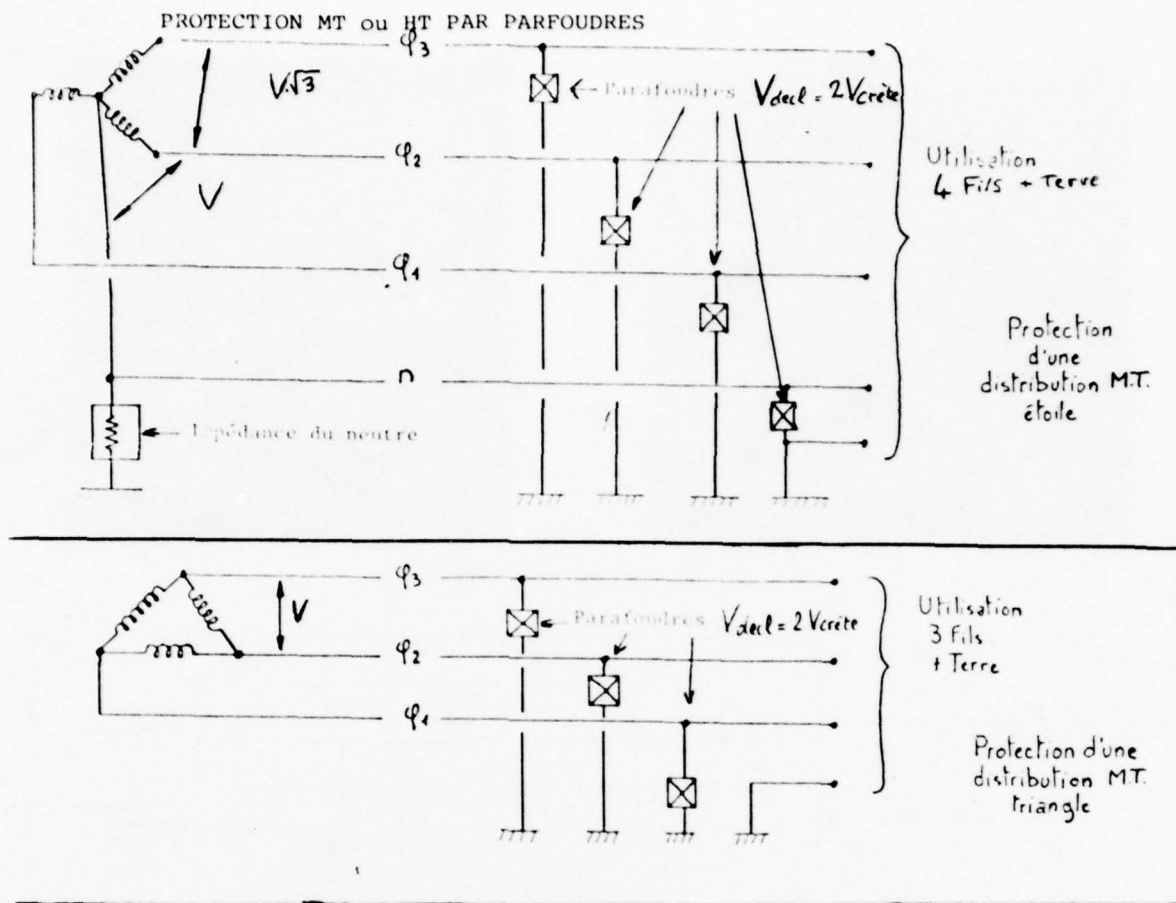 PROTECTION MT ou HT PAR PARFOUDRES
φ3
V√3
Parafoudres
Vdecl = 2 Vcrète
φ2
V
Utilisation
4 Fils + Terre
φ1
Protection
d'une
distribution M.T.
étoile
n
Impédance du neutre
φ3
V
Parafoudres
Vdecl = 2 Vcrète
φ2
φ1
Utilisation
3 Fils
+ Terre
Protection d'une
distribution M.T.
triangle